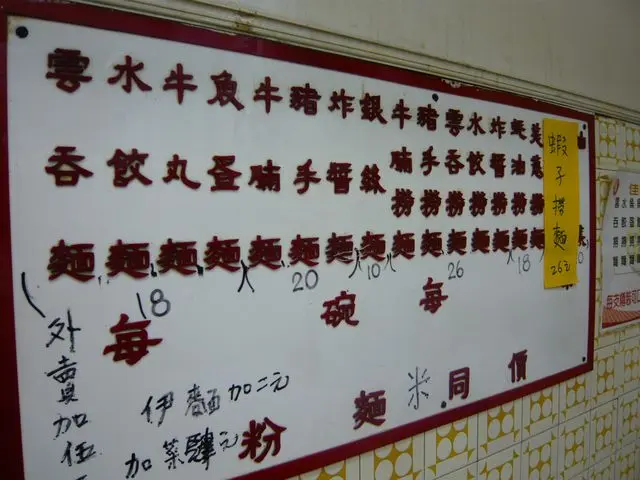 雲吞麵
水餃麵
牛丸麵
魚蛋麵
牛腩麵
豬手麵
炸醬麵
銀絲麵
牛腩撈麵
豬手撈麵
雲吞撈麵
水餃撈麵
炸醬撈麵
蠔油撈麵
蝦子撈麵
26元
18
20
10
26
18
每碗每
外賣加伍
伊麵加二元
加菜
粉麵米同價